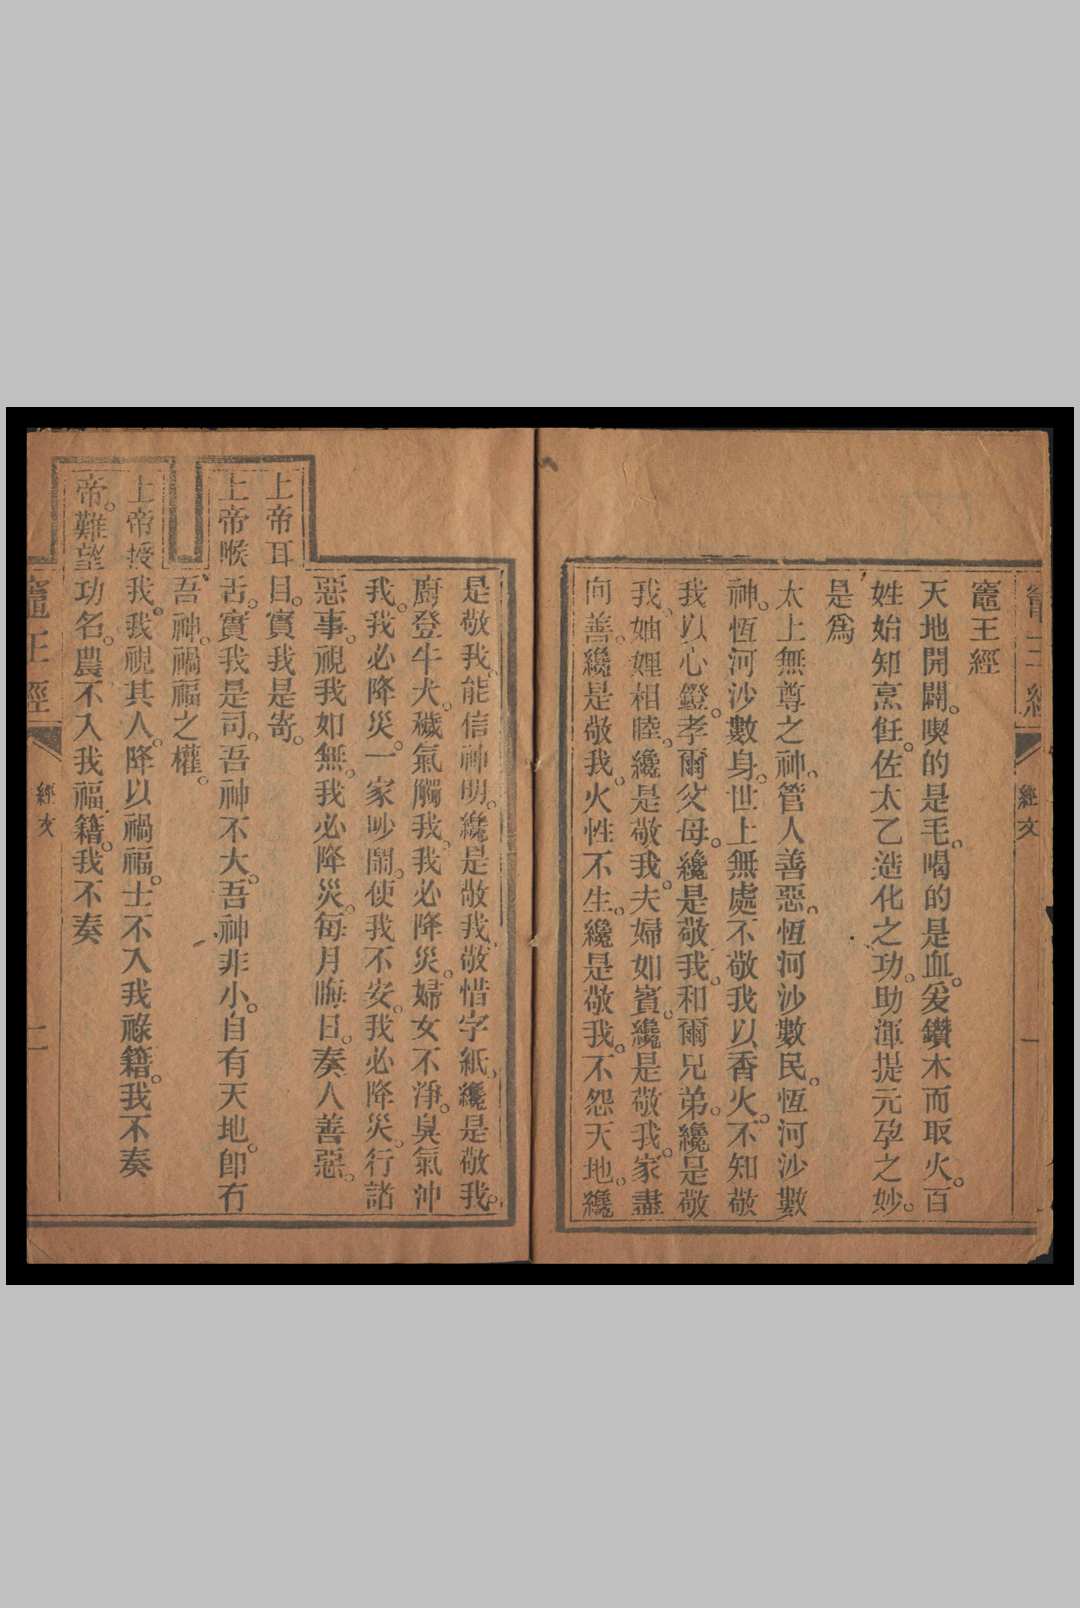 竈王經
經文
一
竈王經
天地開闢。喫的是毛。喝的是血。爰鑽木而取火。百
姓始知烹飪。佐太乙造化之功。助渾提元孕之妙。
是爲
太上無尊之神。管人善惡。恆河沙數民。恆河沙數
神。恆河沙數身。世上無處不敬我以香火。不知敬
我以心鐙。孝爾父母。纔是敬我。和爾兄弟。纔是敬
我。妯娌相睦。纔是敬我。夫婦如賓。纔是敬我。家盡
向善。纔是敬我。火性不生。纔是敬我。不怨天地。纔
是敬我。能信神明。纔是敬我。敬惜字紙。纔是敬我。
廚登牛犬。穢氣觸我。我必降災。婦女不淨。臭氣沖
我。我必降災。一家吵鬧。使我不安。我必降災。行諸
惡事。視我如無。我必降災。每月晦日。奏人善惡。
上帝耳目。實我是寄。
上帝喉舌。實我是司。吾神不大。吾神非小。自有天地。卽有
吾神。禍福之權。
上帝授我。我視其人。降以禍福。士不入我祿籍。我不奏
帝。難望功名。農不入我福籍。我不奏
竈王經
經文
二